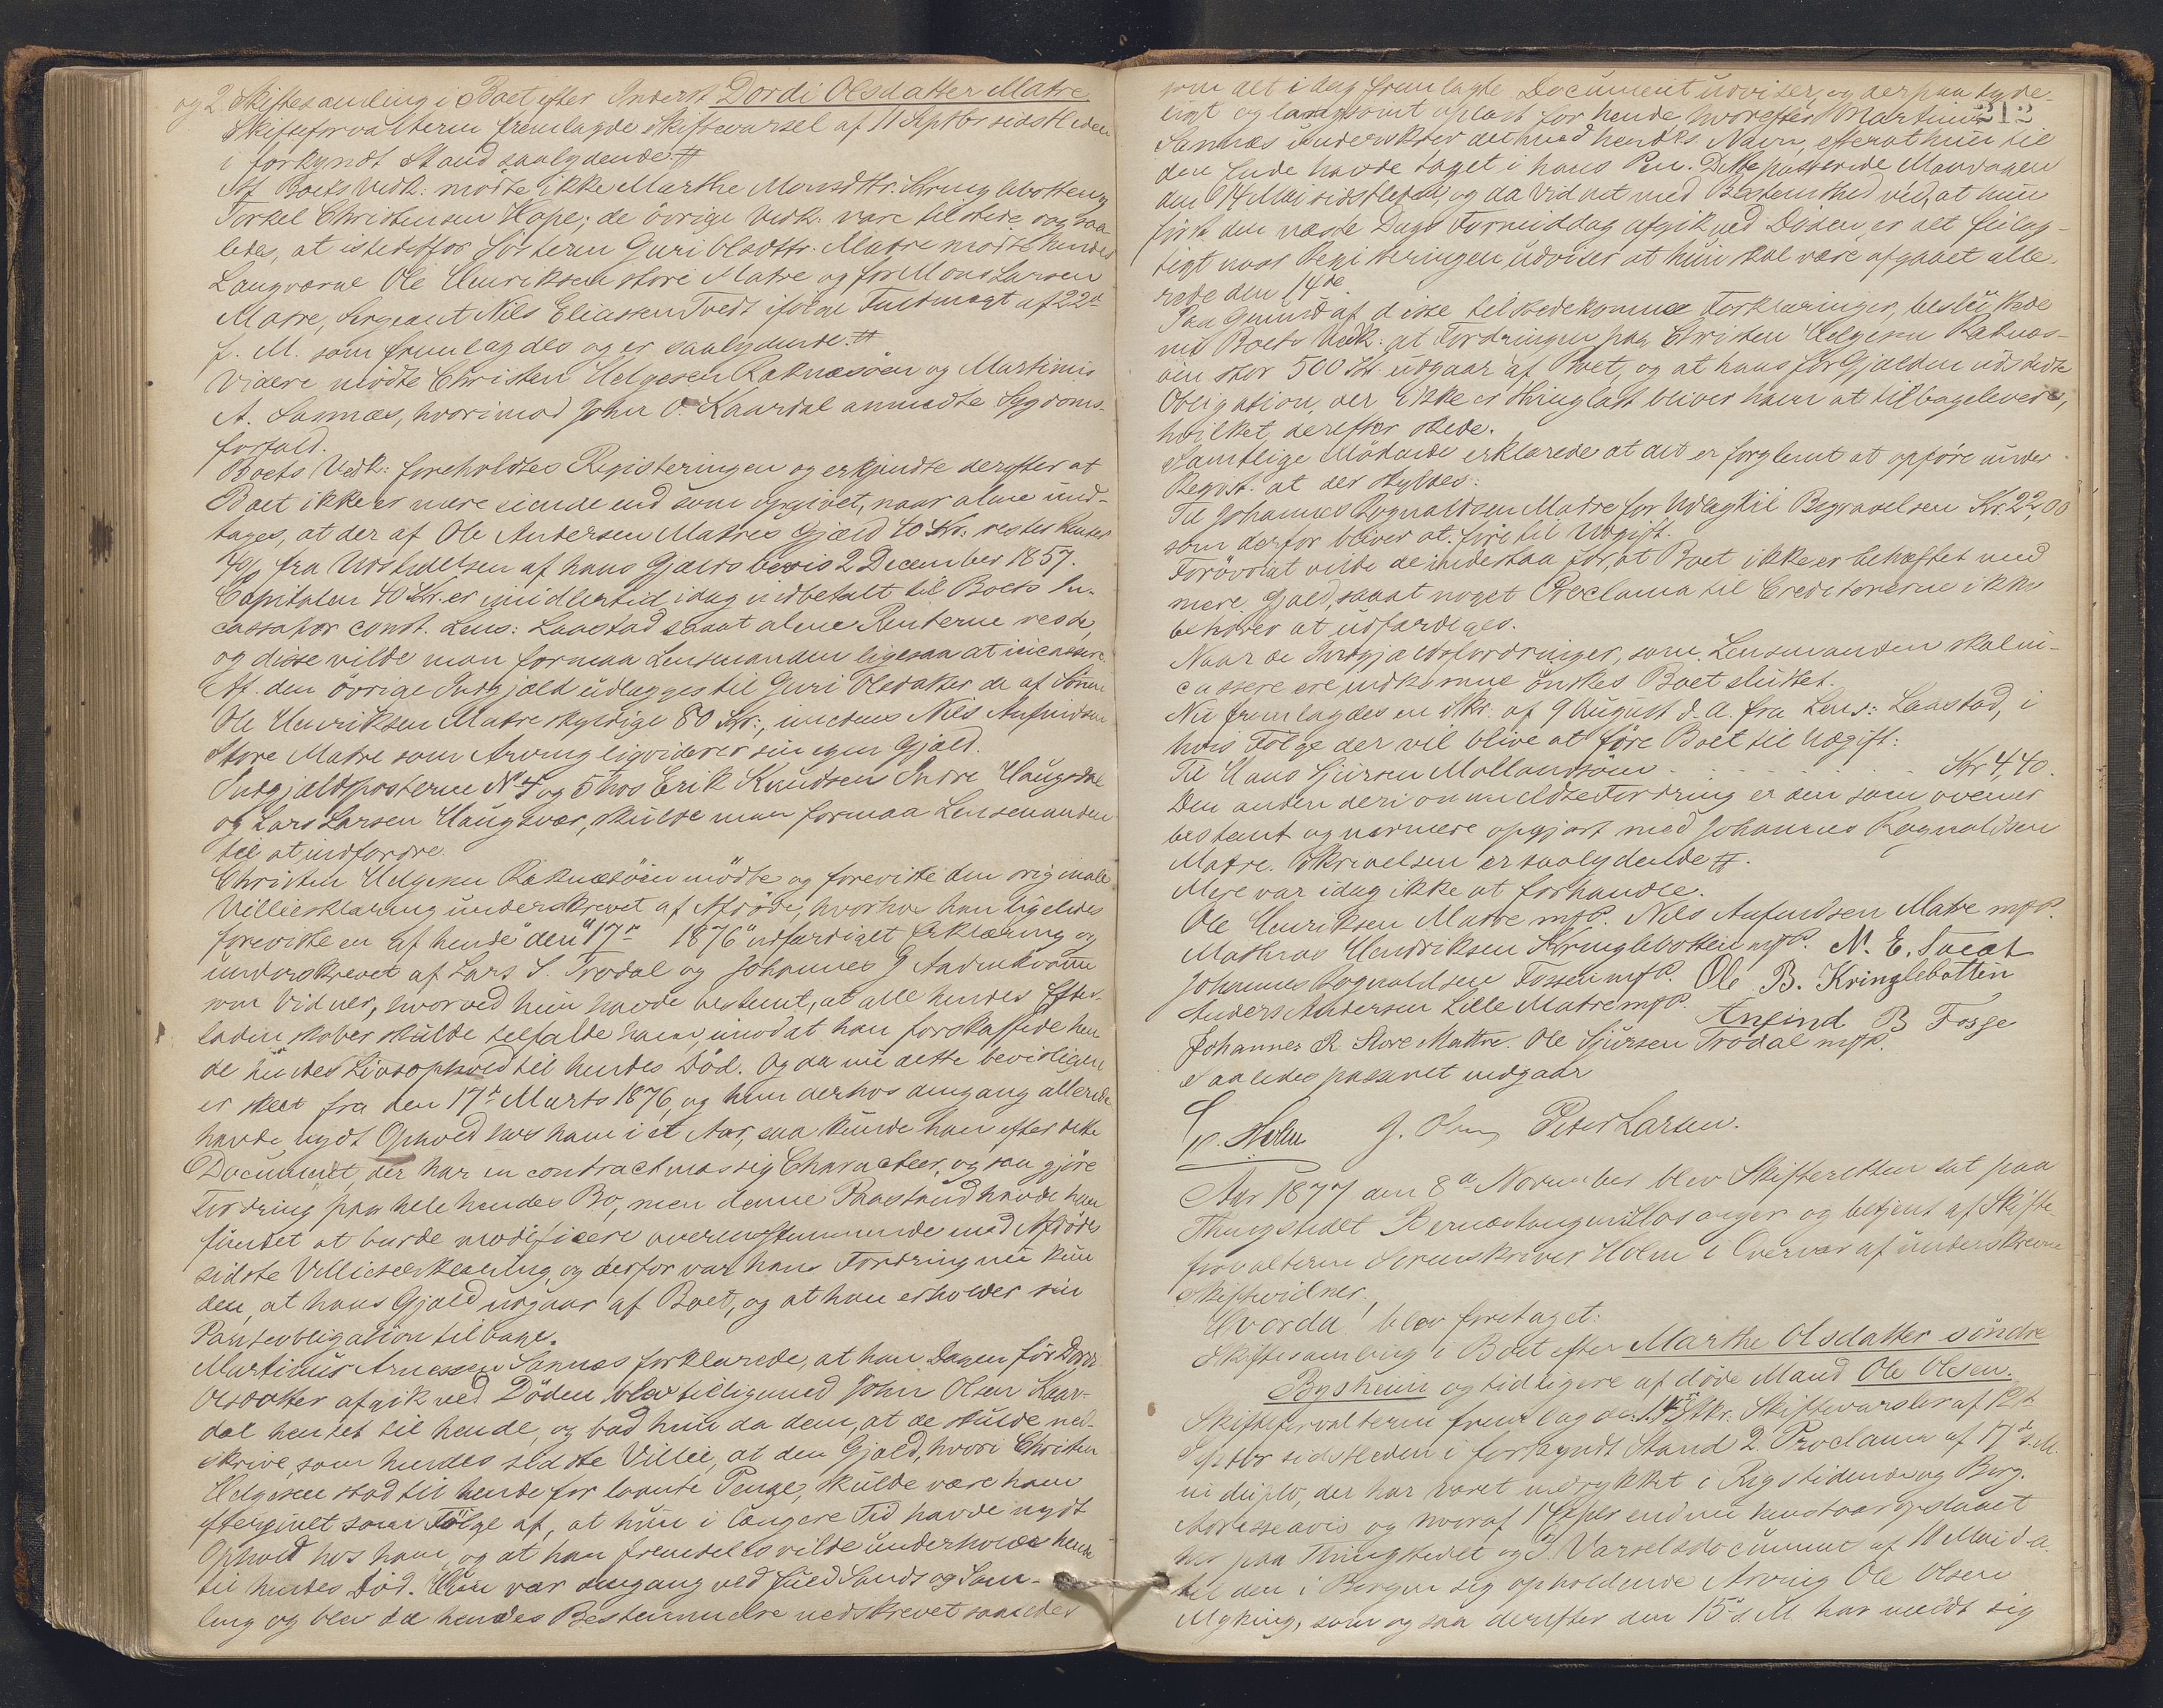 og 2 Skiftesamling i Boet efter Inderst Dordi Olsdatter Matre.
Skifteforvalteren fremlagde Skiftevarsel af 11 Septbr sidstleden
i forkyndt Stand saalydende #
Af Boets Vedk: mødte ikke Marthe Monsdttr. Kringlebotten og
Torkel Christensen Hope; de övrige Vedk. vare tilstede dog saa-
ledes, at istedetfor Sösteren Guri Olsdttr. Matre mødte hendes
Laugværge Ole Henriksen store Matre og for Mons Larsen
Matre, Sergeant Nils Eliassen Tvedt ifölge Fuldmagt af 22d
f. M. som fremlagdes og er saalydende. #
Videre mødte Christen Helgesen Raknæsöen og Martinus
A. Sannæs, hvorimod John O. Kaardal anmeldte Sygdoms-
forfald.
Boets Vedk: foreholdtes Registeringen og erkjendte derefter at
Boet ikke er mere eiende end som opgivet, naar alene und-
tages, at der af Ole Andersen Matres Gjæld 40 Kr. restes Renter
4% fra Udstedelsen af hans Gjældsbevis 2 December 1857.
Capitalen 40 Kr. er imidlertid idag indbetalt til Boets In-
cassator const. Lens: Laastad saaat alene Renterne reste,
og disse vilde man formaa Lensmanden ligesaa at incassere.
Af den övrige Indgjæld udlægges til Guri Olsdatter de af
Ole Henriksen Matre skyldige 80 Kr:, imedens Nils Anfindsen
Store Matre som Arving liqviderer sin egen Gjæld.
Indgjældsposterne No 4 og 5 hos Erik Knudsen Indre Haugsdal
og Lars Larsen Haugsvær, skulde man formaa Lensmanden
til at indfordre.
Christen Helgesen Raknæsöen mödte og foreviste den originale
Villieserklæring underskrevet af Afdöde, hvorhos han ligeledes
foreviste en af hende "den 17de 1876" udfærdiget Erklæring og
underskrevet af Lars S. Trodal og Johannes J Andvikvaum
som Vidner, hvorved hun havde bestemt, at alle hendes Efter-
ladenskaber skulde tilfalde ham, imod at han forskaffede hen
de hendes Livsophold til hendes Död. Og da nu dette bevisligen
er skeet fra den 17de Marts 1876, og hun derhos dengang allerede
havde nydt Ophold hos ham i et Aar, saa kunde han efter dette
Document, der har en contractmæssig Characteer, og saa gjöre
Fordring paa hele hendes Bo, men denne Paastand havde han
fundet at burde modificere overensstemmende med Afdödes
sidste Villieserklæring, og derfor var hans Fordring nu kun
den, at hans Gjæld udgaar af Boet, og at han erholder sin
Panteobligation tilbage.
Martinus Arnessen Sannæs forklarede, at han Dagen för Dordi
Olsdatter afgik ved Döden blev tilligemed John Olsen Kaar-
dal hentet til hende, og bad hun da dem, at de skulde ned-
skrive, som hendes sidste Villie, at den Gjæld, hvori Christen
Helgesen stod til hende for laante Penge, skulde være ham
eftergivet som Fölge af, at hun i længere Tid havde nydt
Ophold hos ham, og at han fremdeles vilde underholde hende
til hendes Död. Hun var dengang ved fuld Sands og Sam-
ling og blev da hendes Bestemmelse nedskrevet saaledes
som det i dag fremlagte Document udviser, og derpaa tyde-
ligt og langsomt oplæst for hende, hvorefter Martinus
212
Sannæs underskrev det med hendes Navn, efterat hun til
den Ende havde taget i hans Pen. Dette passerede Mandagen
den 14 Mai sidstleden, og da Vidnet med Bestemthed ved, at hun
först den næste Dags Formiddag afgik ved Döden, er det feilag-
tigt naar Registeringen udviser at hun skal være afgaaet alle-
rede den 14de.
Paa Grund af disse tilstedekomne Forklaringer, besluttede
nu Boets Vedk: at Fordringen paa Christen Helgesen Raknæs-
öen stor 500 Kr. udgaar af Boet, og at hans for Gjælden udstedte
Obligation, der ikke er thinglæst bliver ham at tilbagelevere,
hvilket derefter skede.
Samtlige Mödende erklærede at det er forglemt at opføre under
Regist. at der skyldes:
Til Johannes Rognaldsen Matre for Udlæg til Begravelsen Kr. 22,00
som derfor bliver at före til Udgift.
Forövrigt vilde de indestaa for, at Boet ikke er behæftet med
mere Gjæld, saaat noget Proclama til Creditorerne ikke
behöver at udfærdiges.
Naar de Indgjældsfordringer, som Lensmanden skal in-
cassere ere indkomne önskes Boet sluttet.
Nu fremlagdes en Skr: af 9 August d. A. fra Lens: Laastad, i
hvis Fölge der vil blive at före Boet til Udgift:
Til Hans Sjursen Mollandsöen . . . . . . Kr 4,40.
Den anden deri anmeldte Fordring er den som ovenfor
bestemt og nærmere opgjort med Johannes Rognaldsen
Matre. Skrivelsen er saalydende #.
Mere var idag ikke at forhandle.
Ole Henriksen Matre mfP. Nils Anfindsen Matre mfP.
Mathias Hendriksen Kringlebotten mfP. N. E. Tvedt
Johannes Rognaldsen Fossen mfP. Ole B. Kringlebotten
Anders Andersen Lille Matre mfP. Anfind B Fosse
Johannes R Store Mattre. Ole Sjursen Trodal mfP.
Saaledes passeret indgaar
Holm J. Olsen Peter Larsen.
Aar 1877 den 8d November blev Skifteretten sat paa
Thingstedet og betjent af Skifte
forvalteren Sorenskriver Holm i Overvær af underskrevne
Skiftevidner,
Hvorda! blev foretaget:
Skiftesamling i Boet efter Marthe Olsdatter söndre
Bysheim og tidligere afdöde Mand Ole Olsen.
Skifteforvalteren fremlagde: 1. Skiftevarsler af 12te
Septbr sidstleden i forkyndt Stand 2. Proclama af 17de s. M.
in duplo, der har været indrykket i Rigstidende og Berg.
Adresseavis og hvoraf 1 Expl. endnu henstaar opslaaet
her paa Thingstedet og 3. Varselsdocument af 10 Mai d. A.
til den i Bergen sig opholdende Arving Ole Olsen
Myking, som og saa derefter den 15de s. M. har meldt sig